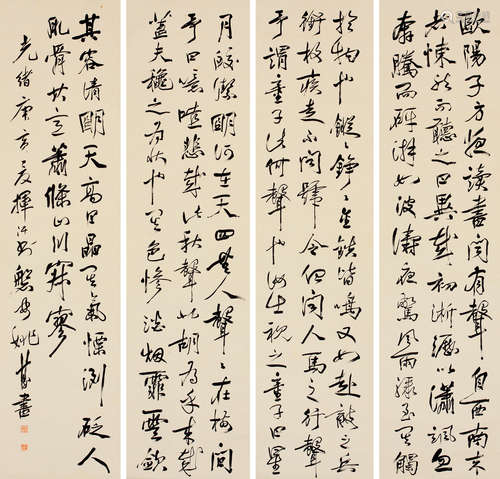 歐陽子方夜讀書聞有聲自西南來
者悚然而聽之曰異哉初淅瀝以瀟颯忽
奔騰而砰湃如波濤夜驚風雨驟至其觸
於物也鏦鏦錚錚金鐵皆鳴又如赴敵之兵
銜枚疾走不聞號令但聞人馬之行聲
予謂童子此何聲也汝出視之童子曰星
月皎潔明河在天四無人聲聲在樹間
予曰噫嘻悲哉此秋聲也胡為乎來哉
蓋夫秋之為狀也其色慘淡煙霏雲斂
其容清明天高日晶其氣慄冽砭人
肌骨其意蕭條山川寂寥
光緒庚寅夏揮汗 姚 書